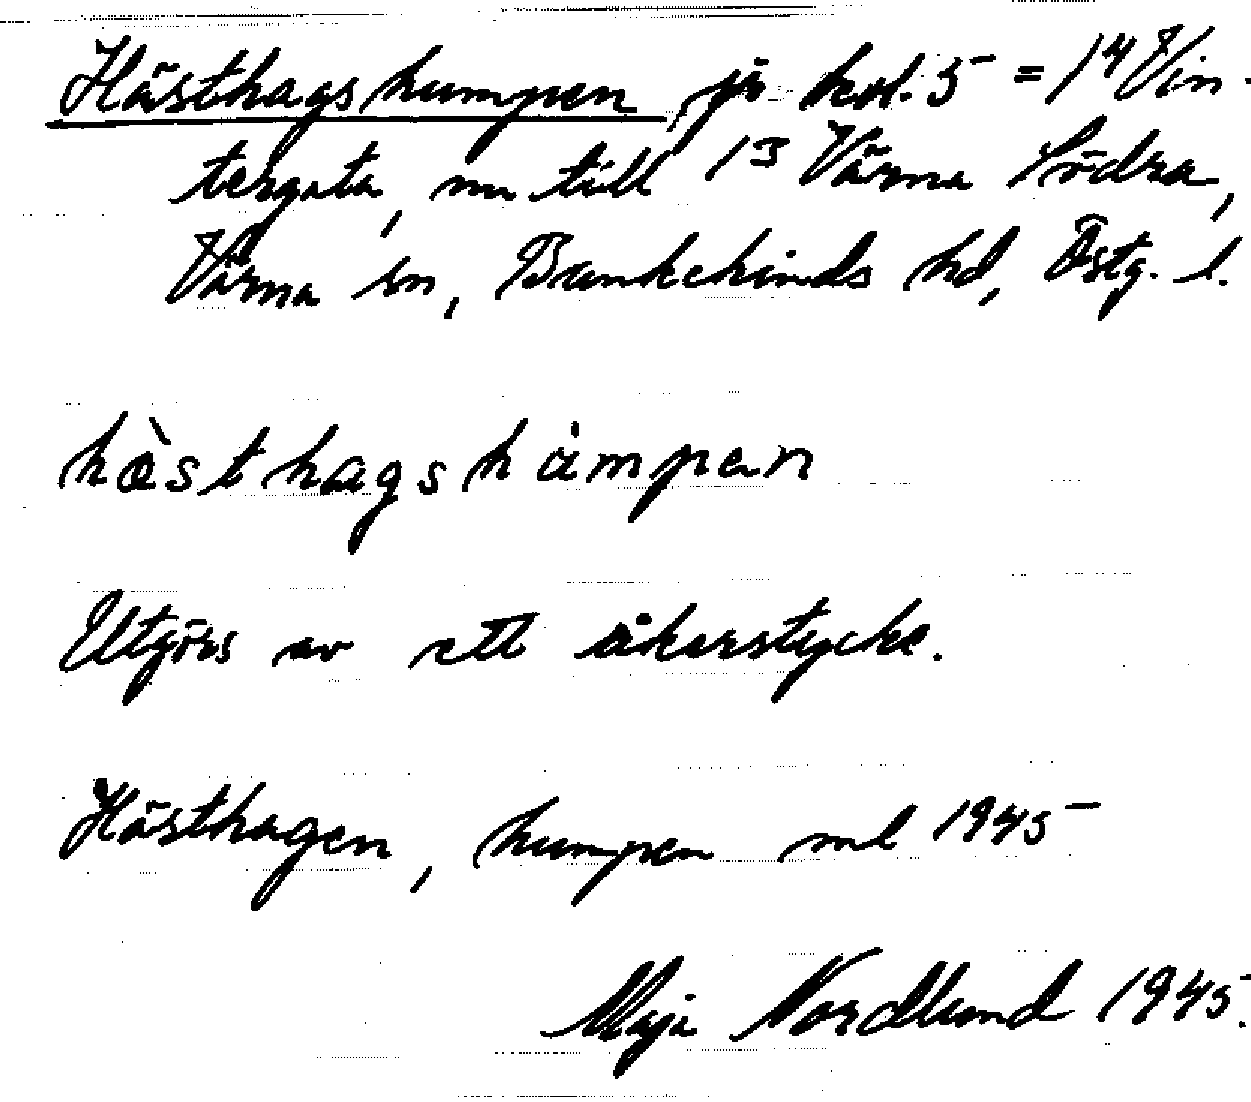 Hästhagshumpen på kol. 5 = 1⁴ Vin-
tergata, nu till 1³ Värna Södra,
Värna sn, Bankekinds hd, Östg. l.
hὰsthagshåmpen
Utgörs av ett åkerstycke.
Hästhagen, humpen ml 1945
Maja Nordlund 1945.